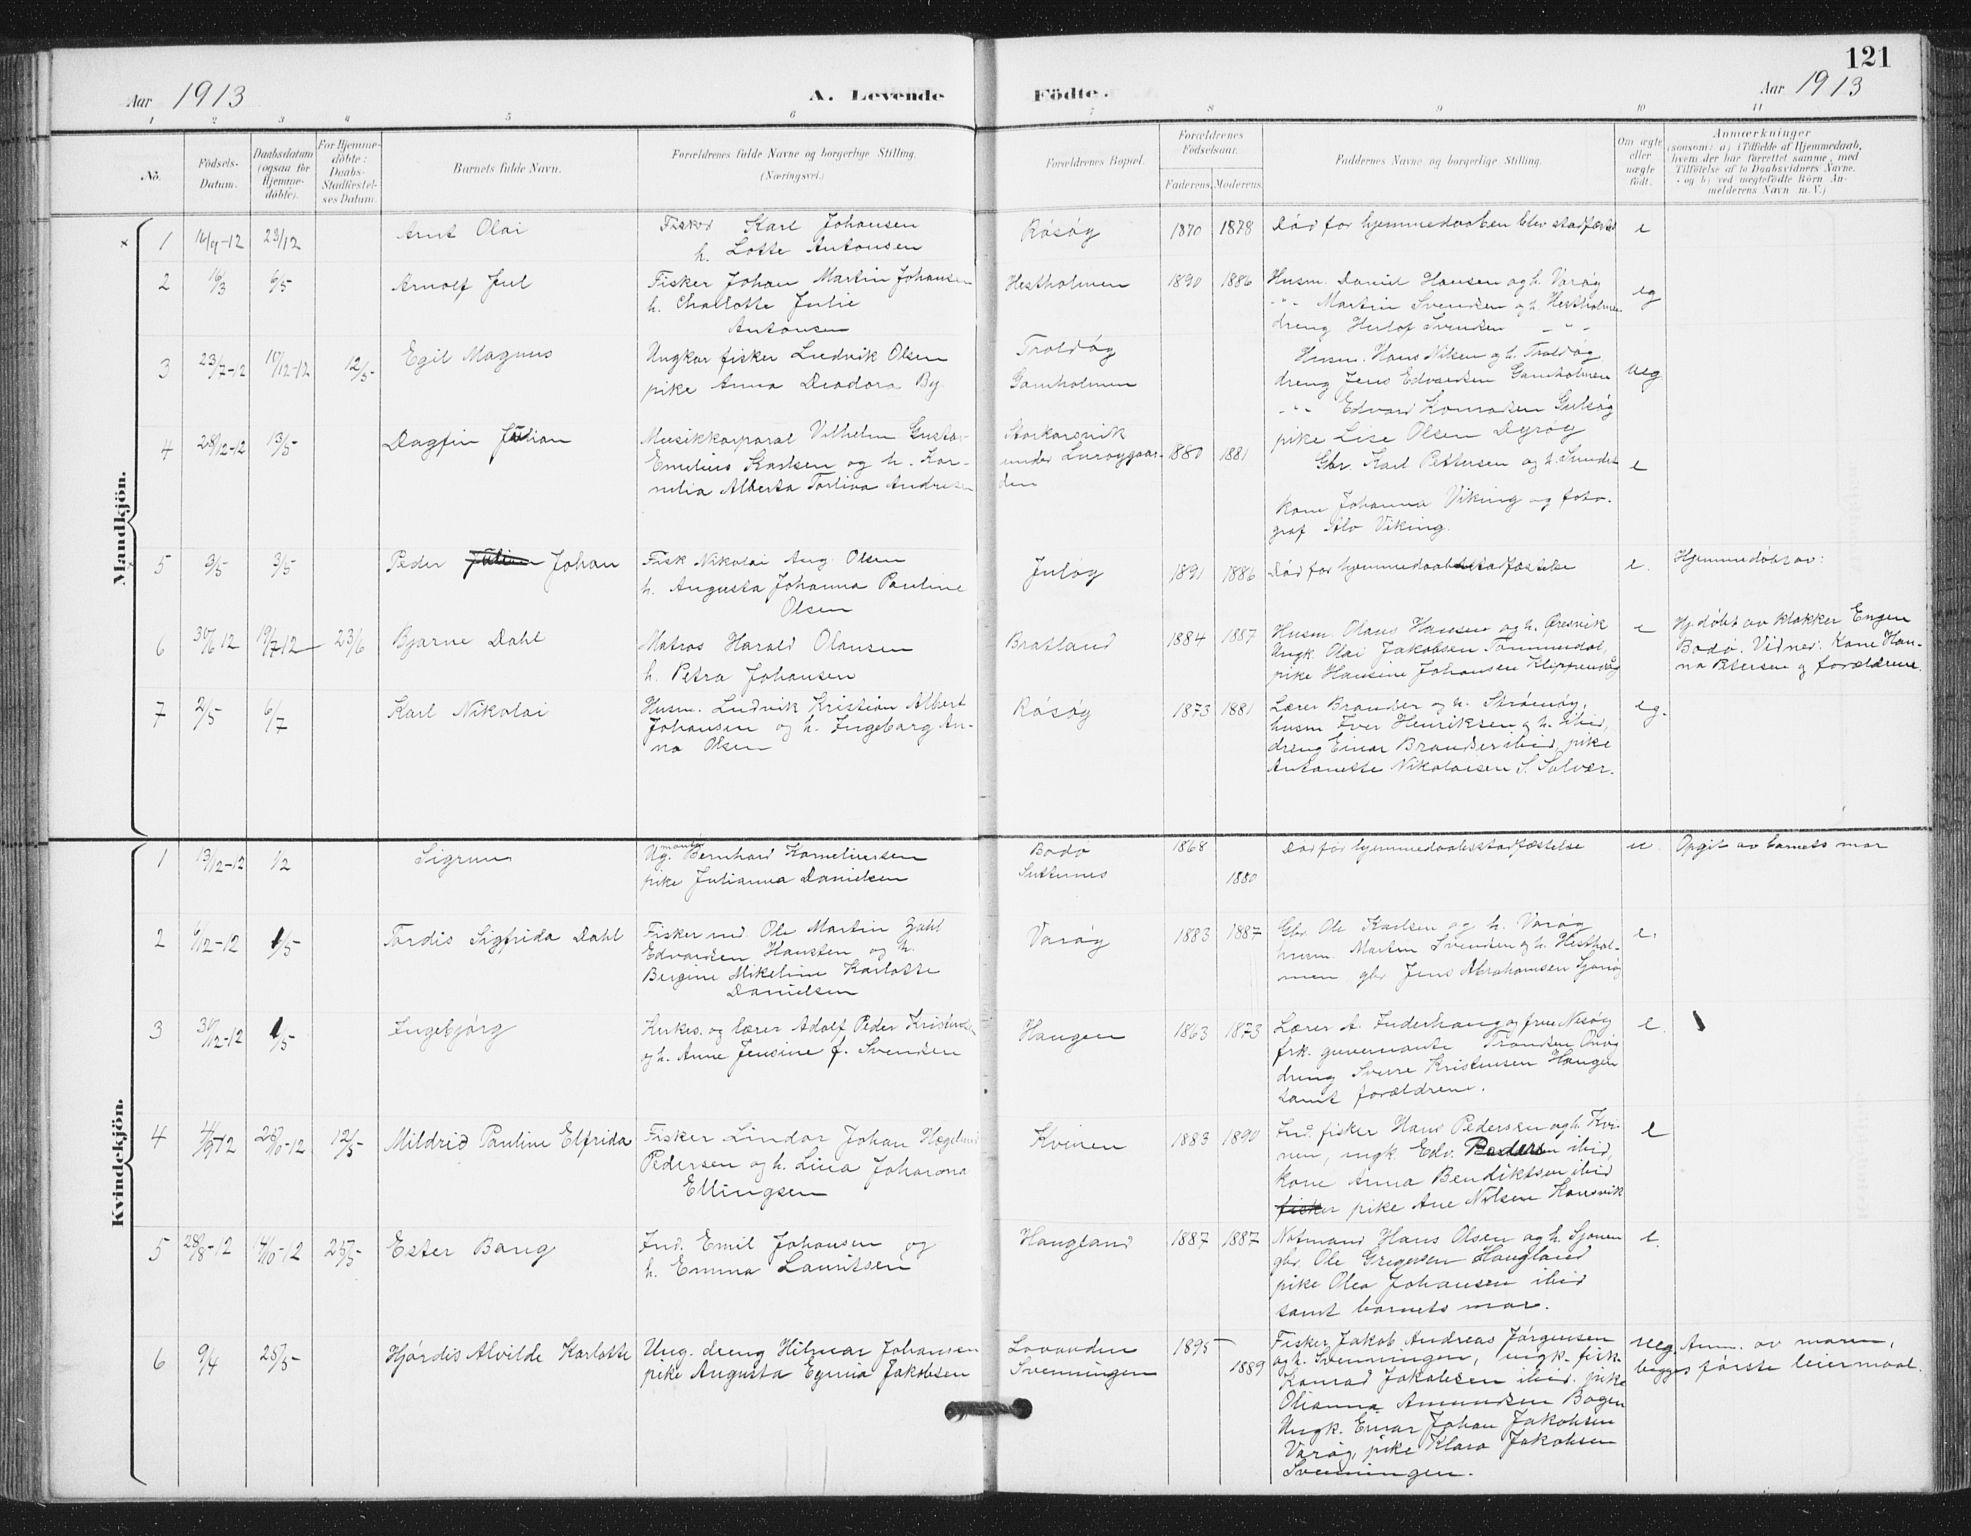 121
Aar 1913
A. Levende
Födte.
Aar 1913
1 2 3 4 5 6 7 8 9 10 11
No.
Födsels-Datum.
Daabsdatum (ogsaa for Hjemmedöbte).
For Hjemmedöbte: Daabs-Stadfæstelses Datum.
Barnets fulde Navn.
Forældrenes fulde Navne og borgerlige Stilling. (Næringsvei.)
Forældrenes Bopæl.
Forældrenes Födselsaar.
Faderens. Moderens.
Faddernes Navne og borgerlige Stilling.
Om ægte eller uægte födt.
Anmærkninger
(saasom: a) i Tilfælde af Hjemmedaab,
hvem der har forrettet samme, med
Tilföielse af to Daabsvidners Navne.
- og b) ved uægtefödte Börn Anmelderens Navn m. V.)
Mandkjön.
1 14/9-12 29/12 Arnt Olai
Fisker Karl Johansen
h. Lotte Antonsen
Råsøy 1870 1878 Död før hjemmedaaben blev stadfæstet e
2 16/3 6/5 Arnolf Jul
Fisker Johan Martin Johansen
h. Charlotte Julie
Antonsen
Hestholmen 1890 1886
Husm. Daniel Hansen og h. Varøy
-"- Martin Svendsen og h. Hestholmen
dreng Herlof Svendsen -"-
eg
3 23/7-12 10/12-12 12/5 Egil Magnus
Ungkar fisker Ludvik Olsen
pike Anna Deodora By
Troldøy
Gamholmen
Husm. Hans Nilsen og h. Troldøy
dreng Jens Edvardsen Gamholmen
-"- Edvard Konradsen Gulsøy
pike Lise Olsen Dyrøy
ueg
4 28/12-12 13/5 Dagfin Julian
Musikkorporal Vilhelm Gustav
Emelius Karlsen og h. Kornelia Alberta Torlina Andresen
Storkarsvik
under Lurøygaarden
1880 1881
Gbr. Karl Pettersen og h. Sundet
kone Johanna Viking og fotograf Alv Viking.
e
5 3/5 3/5 Peder Johan
Fisk Nikolai Aug. Olsen
h. Augusta Johanna Pauline
Olsen
Juløy 1891 1886 Död før hjemmedaabsstadfæstelse e.
Hjemmedøbt av:
6 30/6 12 19/7 12 23/6 Bjarne Dahl
Matros Harald Olausen
h. Petra Johansen
Bratland 1884 1887
Husm. Olaus Hansen og h. Øresvik
Ungk. Olai Jakobsen Tommedal,
pike Hansine Johansen Klippenvåg
e
Hj. døbt av klokker Engen
Bodø. Vidner: Kone Hanna Petersen og forældrene.
7 2/5 6/7 Karl Nikolai
Husm. Ludvik Kristian Albert
Johansen og h. Ingeborg Anna Olsen
Råsøy 1873 1881
Lærer Brander og h. Strømøy,
husm. Iver Henriksen og h. ibid,
dreng Einar Brander ibid, pike
Antonette Nikolaisen S. Solvær.
eg.
Kvindekjön.
1 13/12-12 1/2 Sigrun
Ug. montør Bernhard Korneliussen
pike Julianna Danielsen
Bodø
Sutternes
1868
1880
Död før hjemmedaabsstadfæstelse
u
Opgit av barnets mor
2 1/12-12 1/5 Tordis Sigfrida Dahl
Fisker ind. Ole Martin Dahl
Edvardsen Hansten og h.
Bergine Mikeline Karlotte
Danielsen
Varøy 1883 1887
Gbr. Ole Karlsen og h. Varøy
husm. Martin Svendsen og h. Hestholmen gbr. Jens Abrahamsen Sjonøy
e.
3 30/12-12 1/5 Ingebjørg
Kirkes. og lærer Adolf Peder Kristensen
og h. Anne Jensine f. Svendsen
Haugen 1863 1873
Lærer A. Inderhaug og frue Nesøy
frk. guvernante Trondsen Onøy
dreng Sverre Kristensen Haugen
samt forældrene.
e.
4 4/9 12 26/10-12 12/5 Mildrid Pauline Elfrida
Fisker Lindor Johan Hægelund
Pedersen og h. Lina Johanna
Ellingsen
Kvinen 1883 1890
Ind. fisker Hans Pedersen og h. Kvinen, ungk. Edv. Pedersen ibid,
kone Anna Bendiktsen ibid
fisker pike Ane Nilsen Konsvik
e
5 28/8-12 14/10-12 25/5 Ester Bang
Ind. Emil Johansen og
h. Emma Lauritsen
Haugland 1887 1887
Notmand Hans Olsen og h. Sjonen
gbr. Ole Gregersen Haugland
pike Olea Johansen ibid
samt barnets mor.
e.
6 9/4 25/5 Hjørdis Alvilde Karlotte
Ung. dreng Hilmar Johansen
pike Augusta Egina Jakobsen
Lovunden
Svenningen
1895
1889
Fisker Jakob Andreas Jørgensen
og h. Svenningen, ungk. fisk.
Konrad Jakobsen ibid. pike
Olianna Amundsen Bogen
Ungk. Einar Johan Jakobsen
Varøy, pike Klara Jakobsen
Svenningen.
ueg. Anm. av moren,
begges første leiermaal.